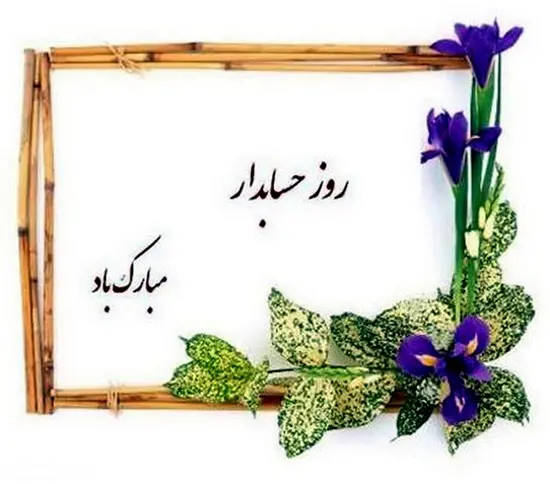 روز حسابدار
مبارک باد